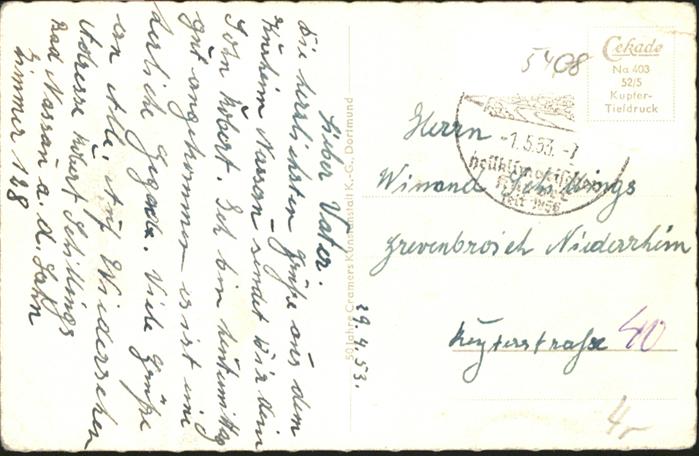 Lieber Vater.
Die herzlichsten Grüße aus dem
Kurheim Nassau sendet Dir Dein
Sohn Robert. Ich bin heute mittag
gut angekommen es ist eine
herrliche Gegend. Viele Grüße
an Alle. Auf Wiedersehen
Adresse Robert Schillings
Bad Nassau a. d. Lahn
Zimmer 128
29.4.53.
50 Jahre Cramers Kunstanstalt K.-G., Dortmund
5408
Cekade
No 403
52/5
Kupfer-
Tiefdruck
-1.5.53.-7
heilklimatischer
seit 1856
Herrn
Winand Schillings
Grevenbroich Niederrhein
straße 40
4,-